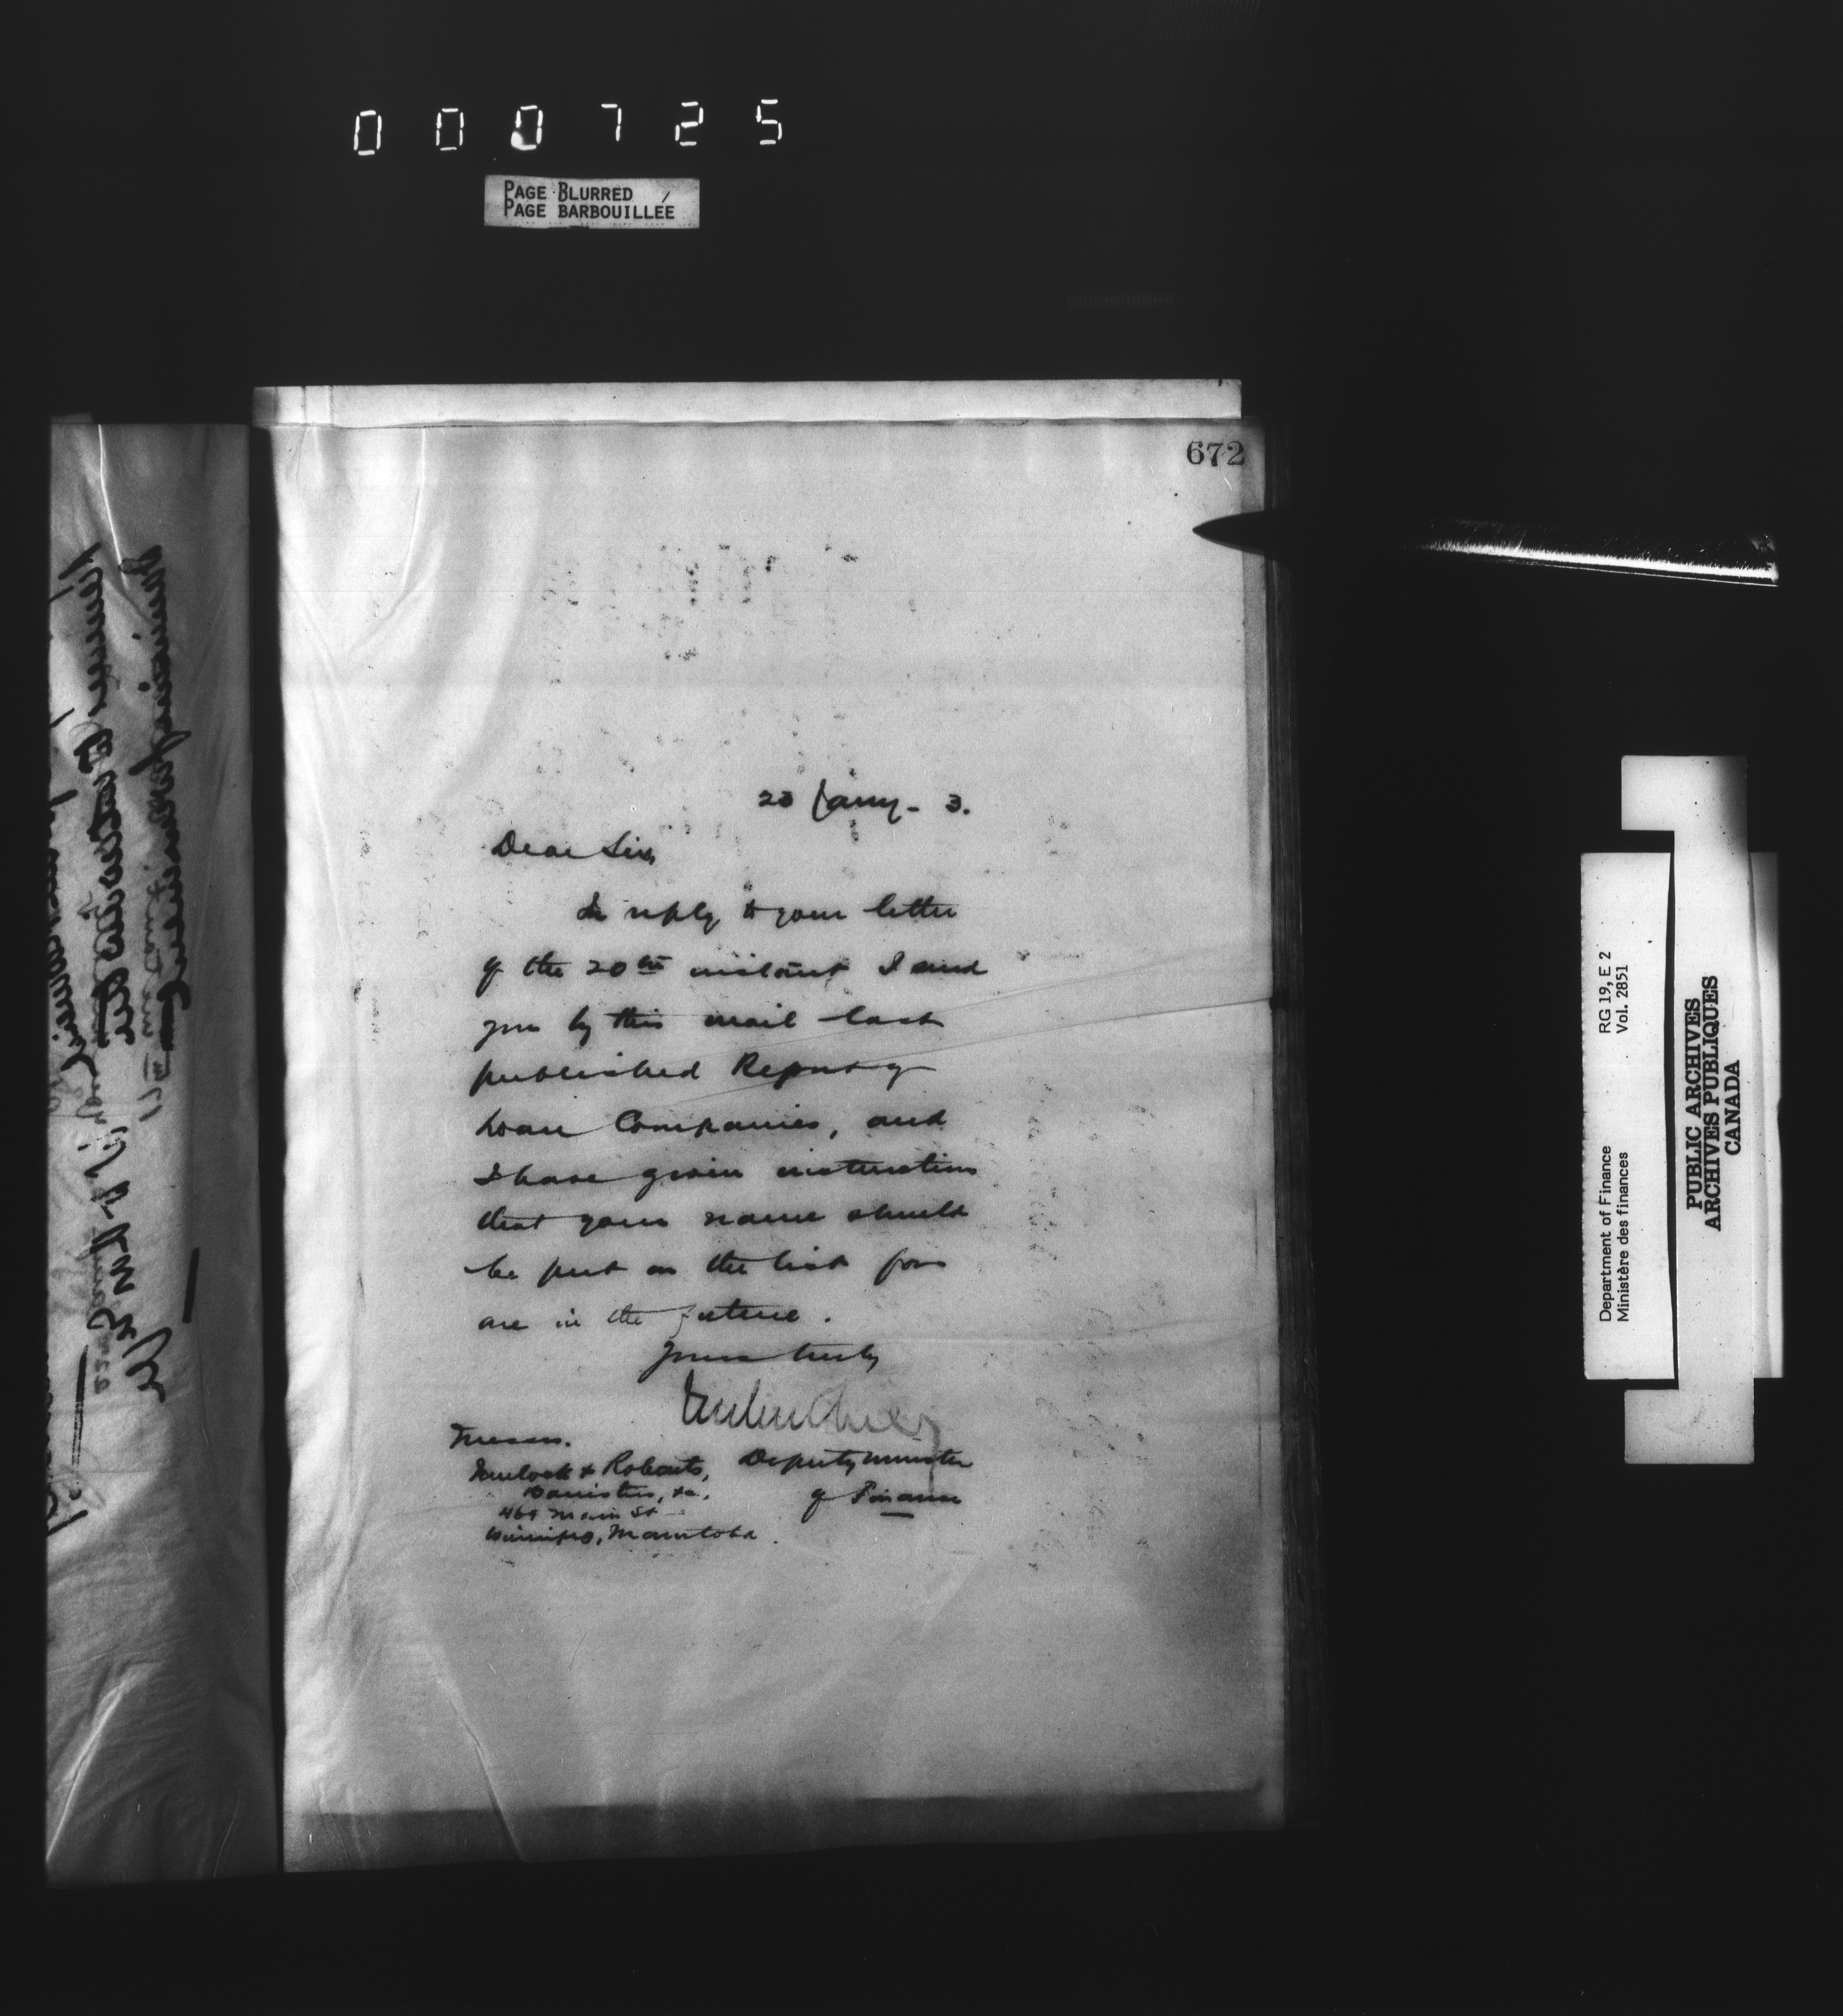 000725
PAGE BLURRED
PAGE BARBOUILLÉE
672
23 Jany - 3.
Dear Sirs,
In reply to your letter
of the 20th instant, I send
you by this mail last
published Report of
Loan Companies, and
I have given instructions
that your name should
be put on the list for
one in the future.
Yours truly
Deputy Minister
of Finance
Messrs.
Mulock & Roberts,
Barristers, &c.,
Main St
Winnipeg, Manitoba.
RG 19, E 2
Vol. 2851
Department of Finance
Ministère des finances
PUBLIC ARCHIVES
ARCHIVES PUBLIQUES
CANADA